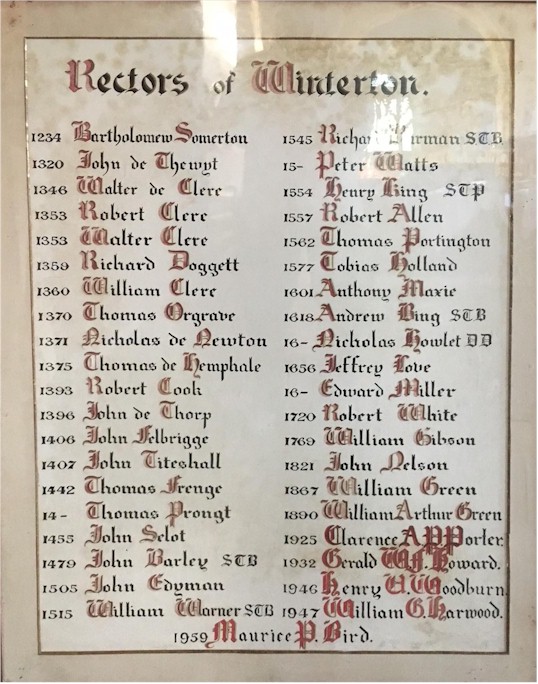 Rectors of Winterton.
1234 Bartholomew Somerton
1320 John de Thewyt
1346 Walter de Clere
1353 Robert Clere
1353 Walter Clere
1359 Richard Doggett
1360 William Clere
1370 Thomas Orgrave
1371 Nicholas de Newton
1375 Thomas de Hemphale
1393 Robert Cook
1396 John de Thorp
1406 John Felbrigge
1407 John Titeshall
1442 Thomas Frenge
14- Thomas Prongt
1455 John Selot
1479 John Barley STB
1505 John Edyman
1515 William Warner STB
1545 STB
15- Peter Watts
1554 Henry King STP
1557 Robert Allen
1562 Thomas Portington
1577 Tobias Holland
1601 Anthony Maxie
1618 Andrew Bing STB
16- Nicholas Howlet DD
1656 Jeffrey Love
16- Edward Miller
1720 Robert White
1769 William Gibson
1821 John Nelson
1867 William Green
1890 William Arthur Green
1925 Clarence A.P.Porter.
1932 Gerald W.F. Howard.
1946 Henry Woodburn.
1947 William G. Harwood.
1959 Maurice P. Bird.